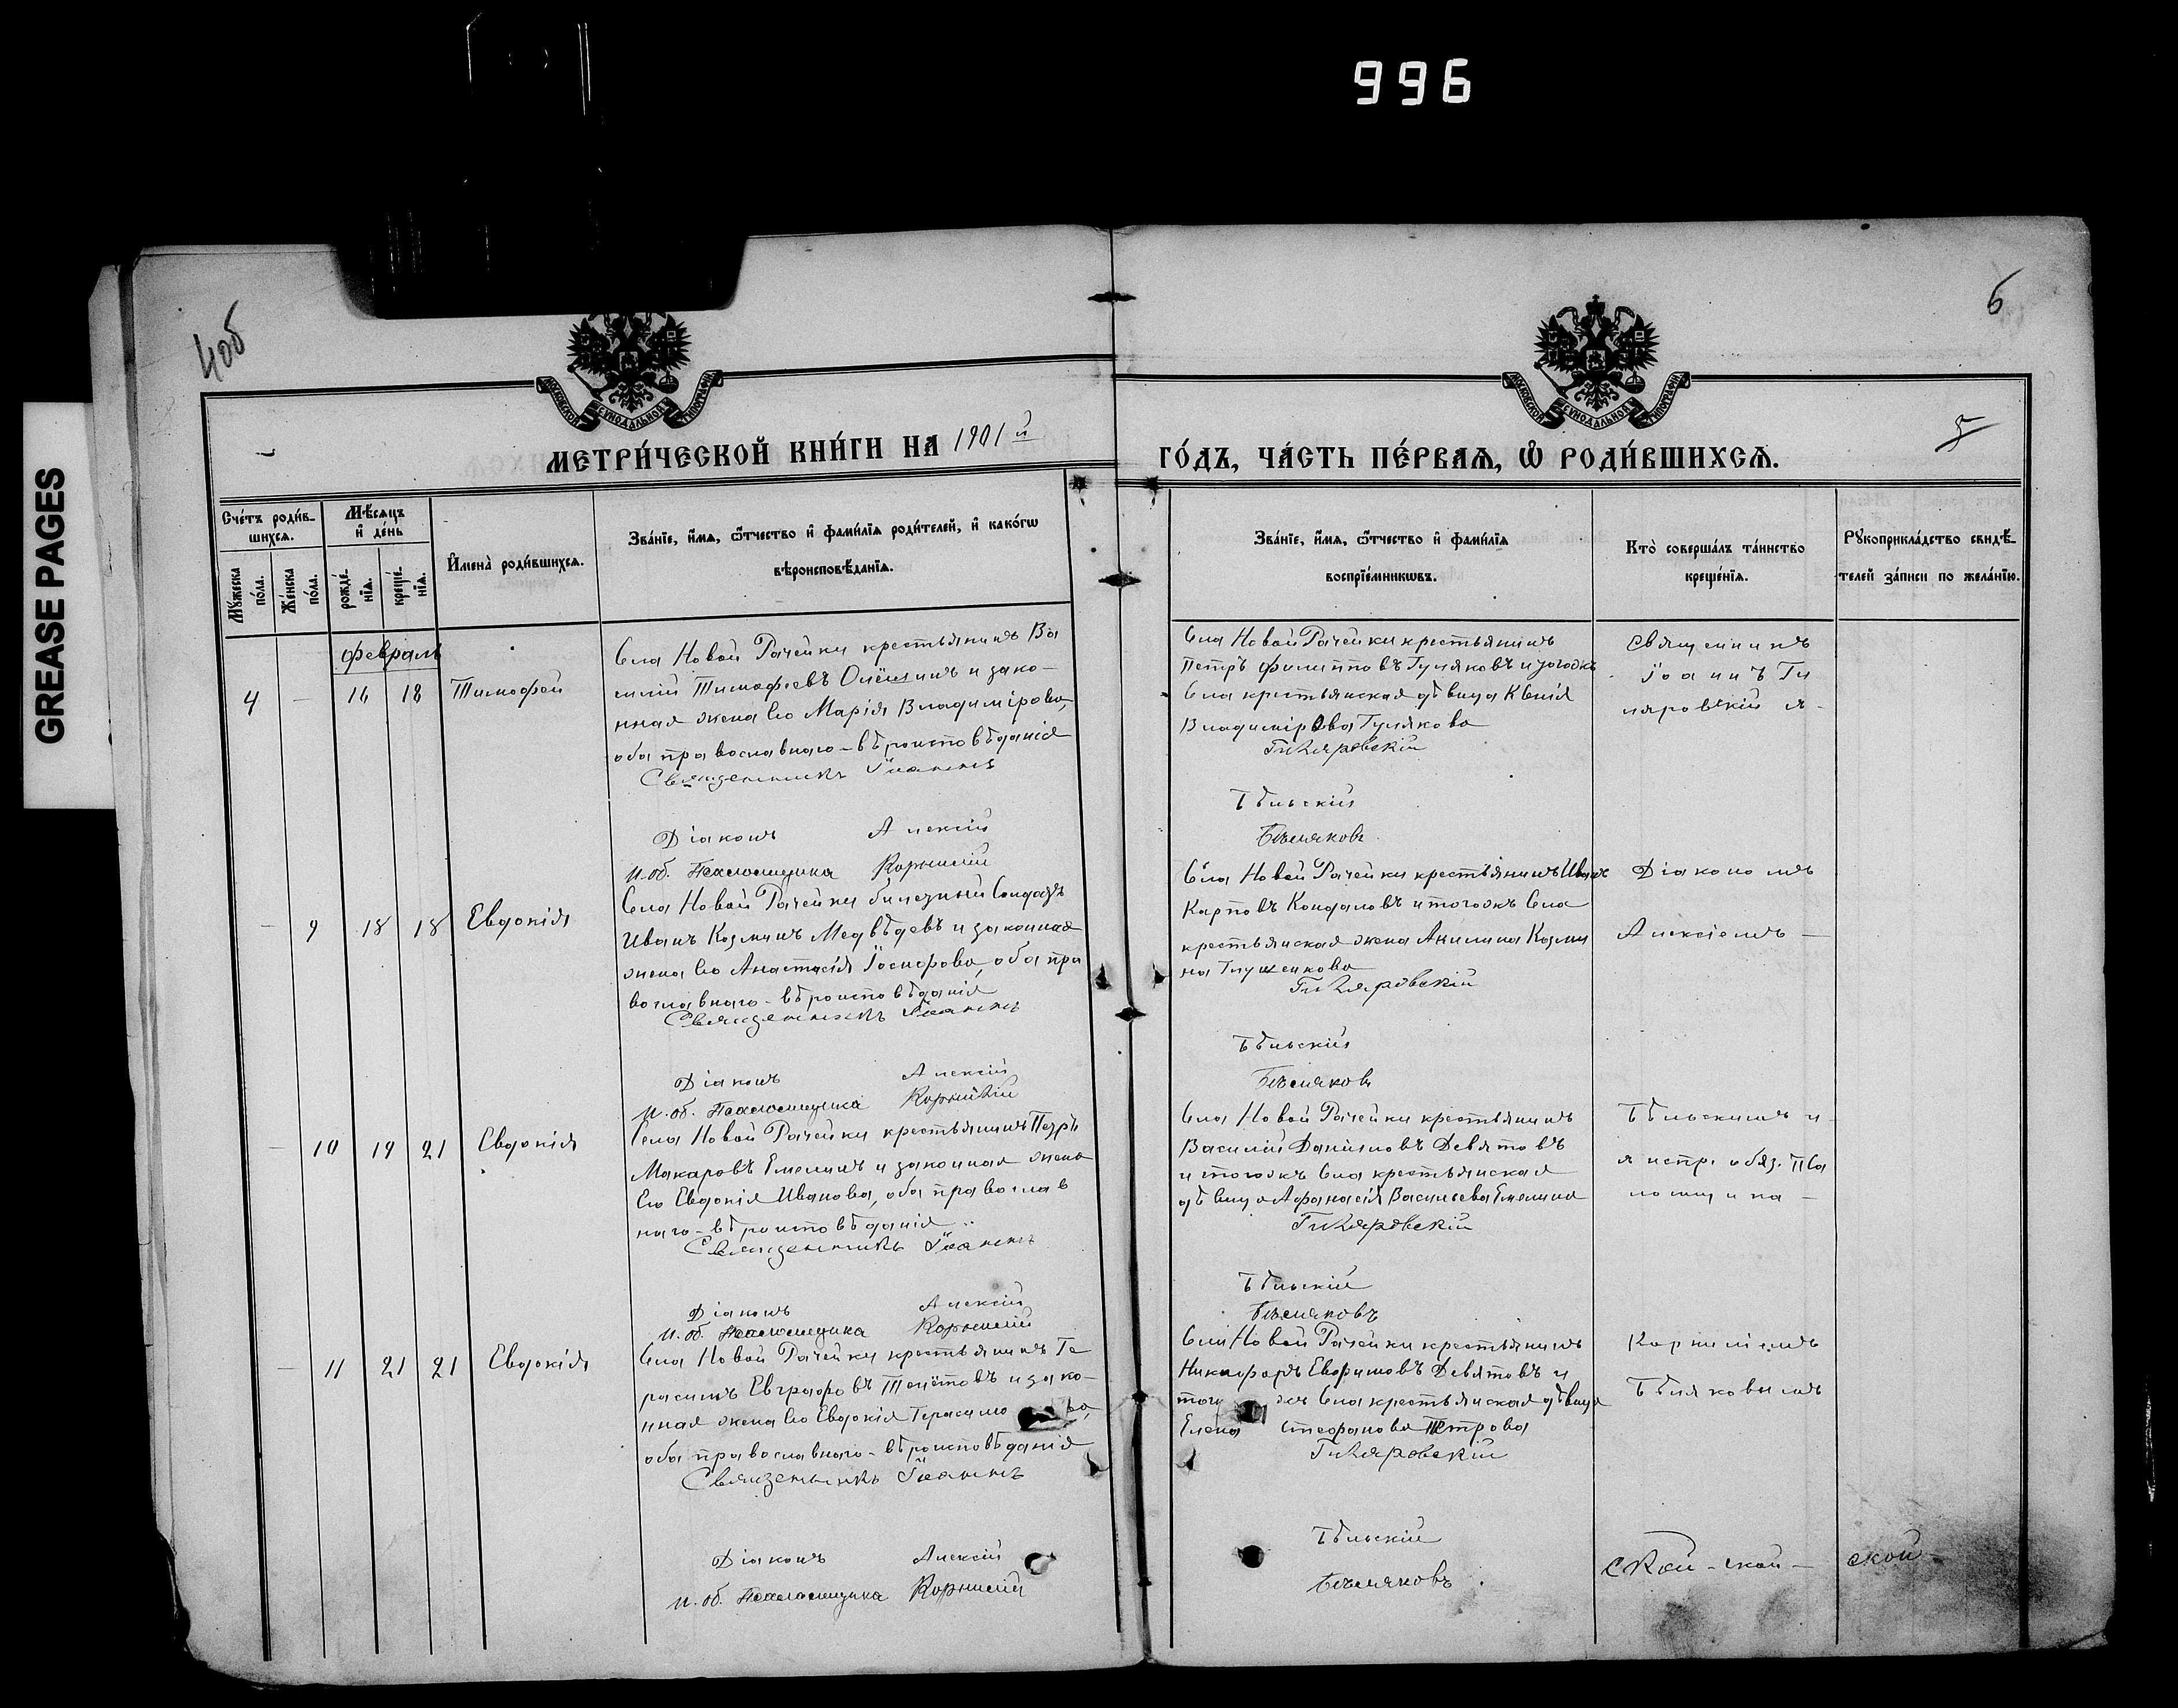 996
GREASE PAGES
4об
6
5
МОСКОВСКОЙ СѴНОДАЛЬНОЙ ТИПОГРАФІИ
МОСКОВСКОЙ СѴНОДАЛЬНОЙ ТИПОГРАФІИ
МЕТРИ́ЧЕСКОЙ КНИ́ГИ НА 1901 й
ГО́ДЪ, ЧА́СТЬ ПЕ́РВАѦ, Ѡ РОДИ́ВШИХСѦ.
Сче́тъ роди́в-
шихсѧ.
Мѣ́сѧцъ
и де́нь
Мꙋ́жеска
по́ла.
Же́нска
по́ла.
рожде́-
нїѧ.
креще́-
нїѧ.
И҆мена̀ роди́вшихсѧ.
Зва́нїе, и҆́мѧ, ѻ҆́тчество и҆ фами́лїѧ роди́телей, и҆ како́гѡ
вѣроисповѣ́данїѧ.
Зва́нїе, и҆́мѧ, ѻ҆́тчество и҆ фами́лїѧ
воспрїе́мникѡвъ.
Кто̀ соверша́лъ та́инство
креще́нїѧ.
Рꙋкоприкла́дство свидѣ́-
телей за́писи по жела́нїю.
февраль
4 — 16 18 Тимофей
Села Новой Рачейки крестьянинъ Ва
силій Тимофеевъ и зако-
нная жена его Марія Владимірова,
оба православнаго-вѣроисповѣданія
Священникъ Іоаннъ
Діаконъ Алексій
и. об. Псаломщика Корнилій
Села Новой Рачейки крестьянинъ
Петръ Филипповъ Гуляковъ и тогожъ
Села крестьянская дѣвица Ксенія
Владимірова Гулякова
Гиляровскій
Бѣльскій
Бѣляковъ
Священникъ
Іоаннъ Ги
ляровскій и-
— 9 18 18 Евдокія
Села Новой Рачейки билетный Солдатъ
Иванъ Козминъ Медвѣдевъ и законная
жена его Анастасія, оба пра
вославнаго-вѣроисповѣданія
Священникъ Іоаннъ
Діаконъ Алексій
и. об. Псаломщика Корнилій
Села Новой Рачейки крестьянинъ Иванъ
Карповъ и тогожъ Села
крестьянская жена Акилина Козми
на
Гиляровскій
Бѣльскій
Бѣляковъ
Діакономъ
Алексіемъ —
— 10 19 21 Евдокія
Села Новой Рачейки крестьянинъ Петръ
Макаровъ Емелинъ и законная жена
его Евдокія Иванова, оба православ
наго-вѣроисповѣданія
Священникъ Іоаннъ
Діаконъ Алексій
и. об. Псаломщика Корнилій
Села Новой Рачейки крестьянинъ
Василій Даниловъ Девятовъ
и тогожъ Села крестьянская
дѣвица Афанасія Васильева Емелина
Гиляровскій
Бѣльскій
Бѣляковъ
Бѣльскимъ и
и испр. обяз. Пса
ломщика —
— 11 21 21 Евдокія
Села Новой Рачейки крестьянинъ Ге
расимъ Евграфовъ и зако-
нная жена его Евдокія
оба православнаго-вѣроисповѣданія
Священникъ Іоаннъ
Діаконъ Алексій
и. об. Псаломщика Корнилій
Села Новой Рачейки крестьянинъ
Никифоръ Евфимовъ Девятовъ и
того жъ Села крестьянская дѣвица
Елена Стефанова Петрова
Гиляровскій
Бѣльскій
Бѣляковъ
Корниліемъ
Бѣляковымъ
ской-ской- ской-